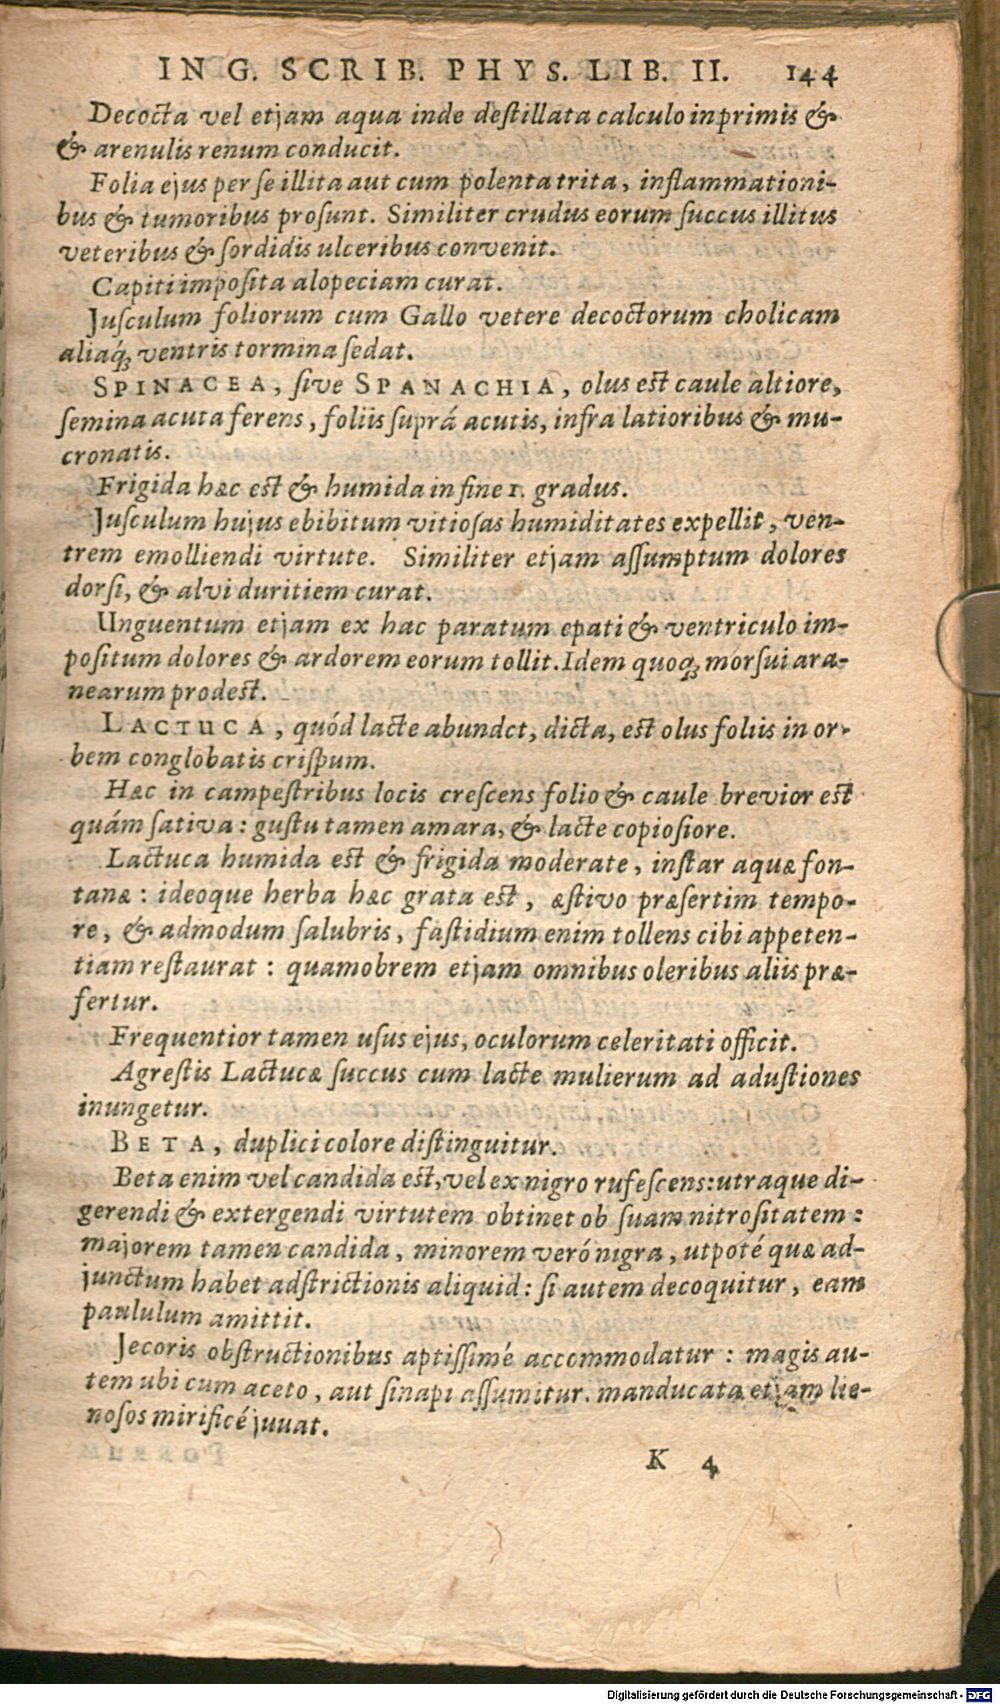 IN G. SCRIB. PHYS. LIB. II. 144
Decocta vel etjam aqua inde destillata calculo inprimis &
& arenulis renum conducit.
Folia ejus per se illita aut cum polenta trita, inflammationi-
bus & tumoribus prosunt. Similiter crudus eorum succus illitus
veteribus & sordidis ulceribus convenit.
Capiti imposita alopeciam curat.
Jusculum foliorum cum Gallo vetere decoctorum cholicam
aliaq́; ventris tormina sedat.
SPINACEA, sive SPANACHIA, olus est caule altiore,
semina acuta ferens, foliis suprá acutis, infra latioribus & mu-
cronatis.
Frigida hæc est & humida in fine 1. gradus.
Jusculum hujus ebibitum vitiosas humiditates expellit, ven-
trem emolliendi virtute. Similiter etjam assumptum dolores
dorsi, & alvi duritiem curat.
Unguentum etjam ex hac paratum epati & ventriculo im-
positum dolores & ardorem eorum tollit. Idem quoq; morsui ara-
nearum prodest.
LACTUCA, quód lacte abundet, dicta, est olus foliis in or-
bem conglobatis crispum.
Hæc in campestribus locis crescens folio & caule brevior est
quám sativa: gustu tamen amara, & lacte copiosiore.
Lactuca humida est & frigida moderate, instar aquæ fon-
tanæ: ideoque herba hæc grata est, æstivo præsertim tempo-
re, & admodum salubris, fastidium enim tollens cibi appeten-
tiam restaurat: quamobrem etjam omnibus oleribus aliis præ-
fertur.
Frequentior tamen usus ejus, oculorum celeritati officit.
Agrestis Lactucæ succus cum lacte mulierum ad adustiones
inungetur.
BETA, duplici colore distinguitur.
Beta enim vel candida est, vel ex nigro rufescens: utraque di-
gerendi & extergendi virtutem obtinet ob suam nitrositatem:
majorem tamen candida, minorem veró nigra, utpoté quæ ad-
junctum habet adstrictionis aliquid: si autem decoquitur, eam
paululum amittit.
Jecoris obstructionibus aptissimé accommodatur: magis au-
tem ubi cum aceto, aut sinapi assumitur. manducata etjam lie-
nosos mirificé juvat.
K 4
Digitalisierung gefördert durch die Deutsche Forschungsgemeinschaft - DFG